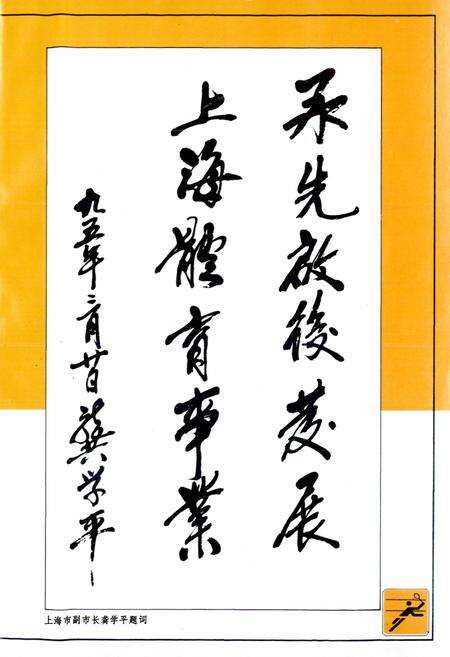 承先啟後發展
上海體育事業
九五年二月廿日龔学平
上海市副市长龚学平题词